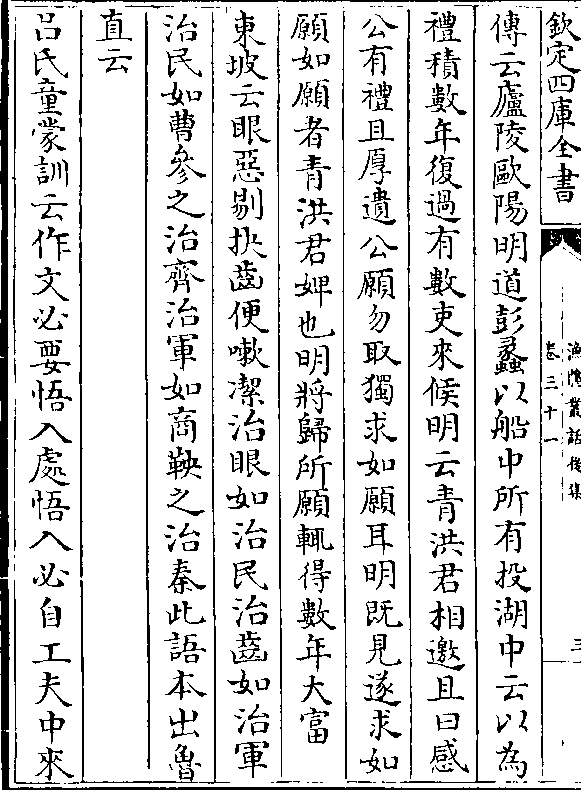 欽定四庫全書
漁隱叢話後集
卷三十一
傳云廬陵歐陽明道彭蠡以船中所有投湖中云以為
禮積數年復過有數吏來候明云青洪君相邀且曰感
公有禮且厚遺公願勿取獨求如願耳明既見遂求如
願如願者青洪君婢也明將歸所願輒得數年大富
東坡云眼惡剔抉齒便嗽潔治眼如治民治齒如治軍
治民如曹參之治齊治軍如商鞅之治秦此語本出魯
直云
呂氏童蒙訓云作文必要悟入處悟入必自工夫中來